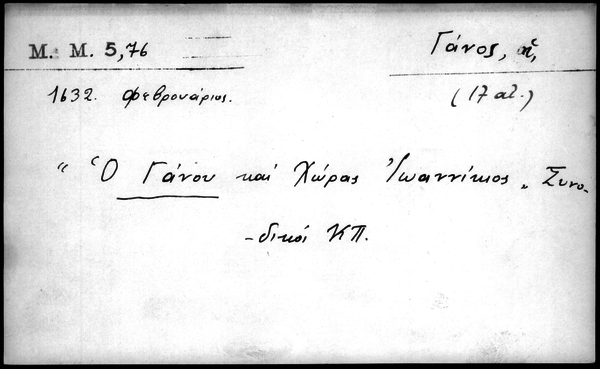 Μ. Μ. 5,76
Γάνος, ἡ,
1632. Φεβρουάριος.
(17 αἰ.)
“ Ὁ Γάνου καὶ Χώρας Ἰωαννίκιος „ Συνο-
-δικοί ΚΠ.